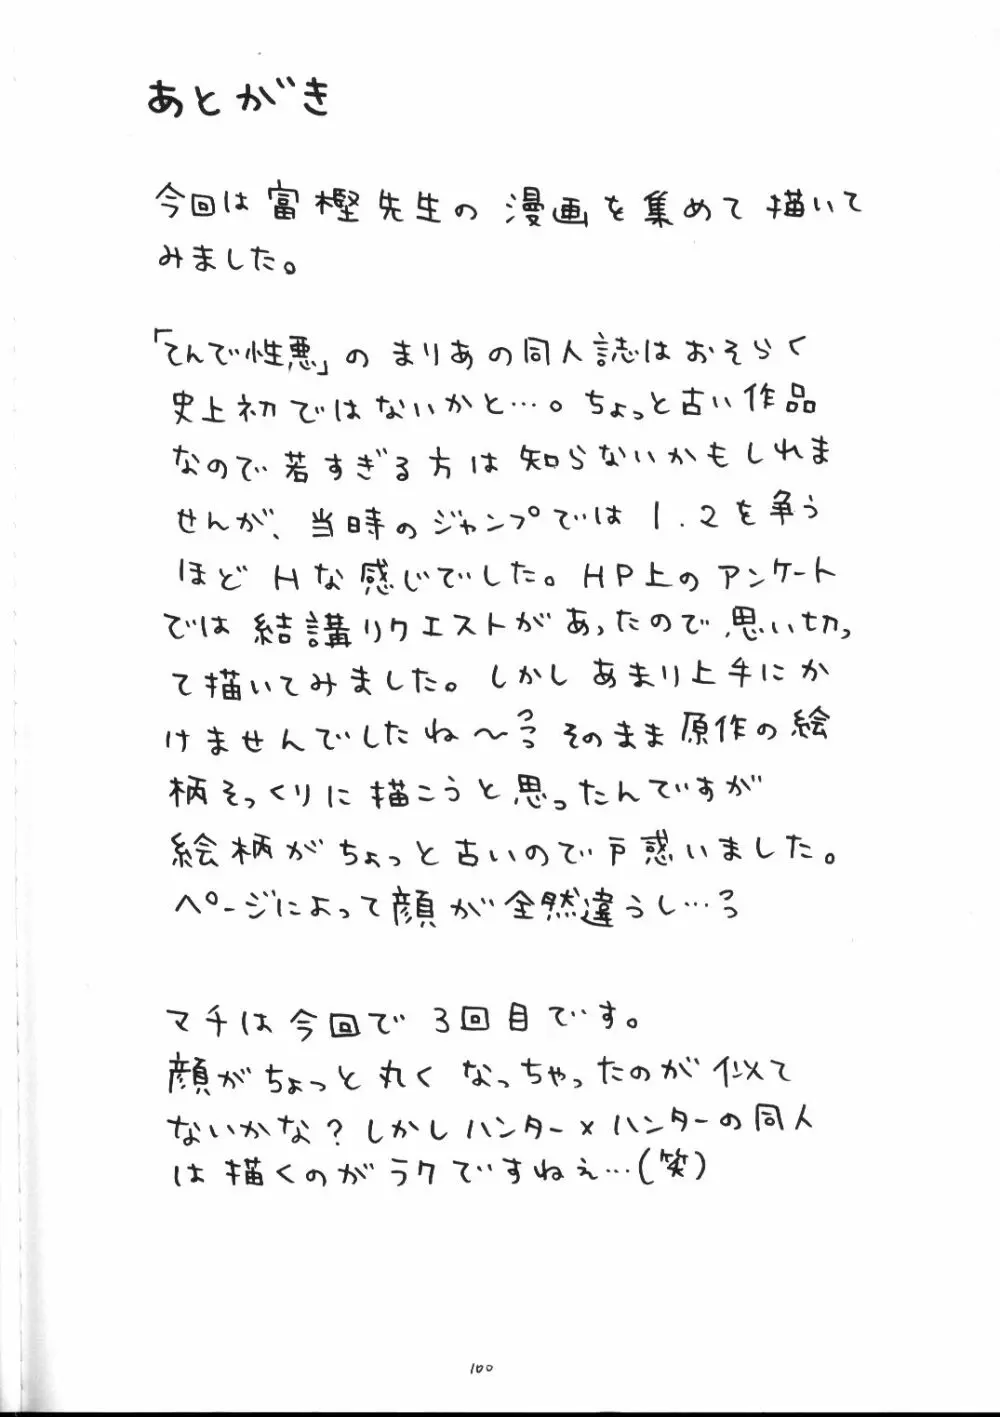 あとがき
今回は富樫先生の漫画を集めて描いて
みました。
「てんで性悪」のまりあの同人誌はおそらく
史上初ではないかと…。ちょっと古い作品
なので若すぎる方は知らないかもしれま
せんが、当時のジャンプでは1.2を争う
ほどHな感じでした。HP上のアンケート
では結講リクエストがあったので思い切っ
て描いてみました。しかしあまり上手にか
けませんでしたね～そのまま原作の絵
柄そっくりに描こうと思ったんですが
絵柄がちょっと古いので戸惑いました。
ページによって顔が全然違うし…
マチは今回で3回目です。
顔がちょっと丸くなっちゃったのが似て
ないかな?しかしハンター×ハンターの同人
は描くのがラクですねぇ…(笑)
100